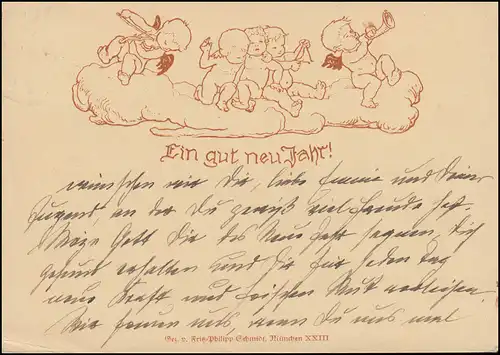 Ein gut neu Jahr!
wünschen wir Dir, liebe Fannie und Deiner
Jugend, an der Du gewiß viel Freude hast.
Möge Gott Dir das Neue Jahr segnen, Dich
gesund erhalten und Dir für jeden Tag
neue Kraft und frischen Mut verleihen.
Wir freuen uns, wenn Du uns mal
Gez. v. Fritz-Philipp Schmidt, München XXIII